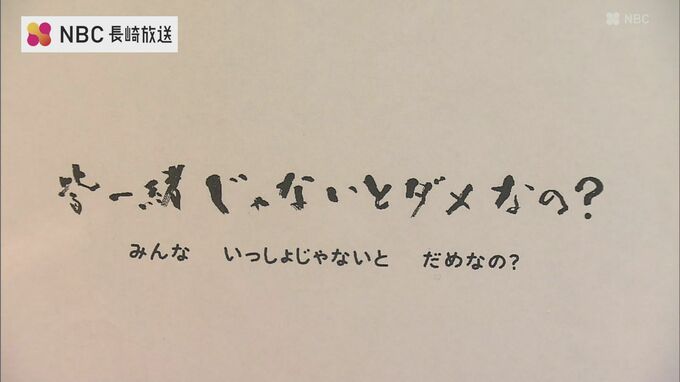 NBC 長崎放送
NBC
皆一緒じゃないとダメなの?
みんな いっしょじゃないと だめなの?